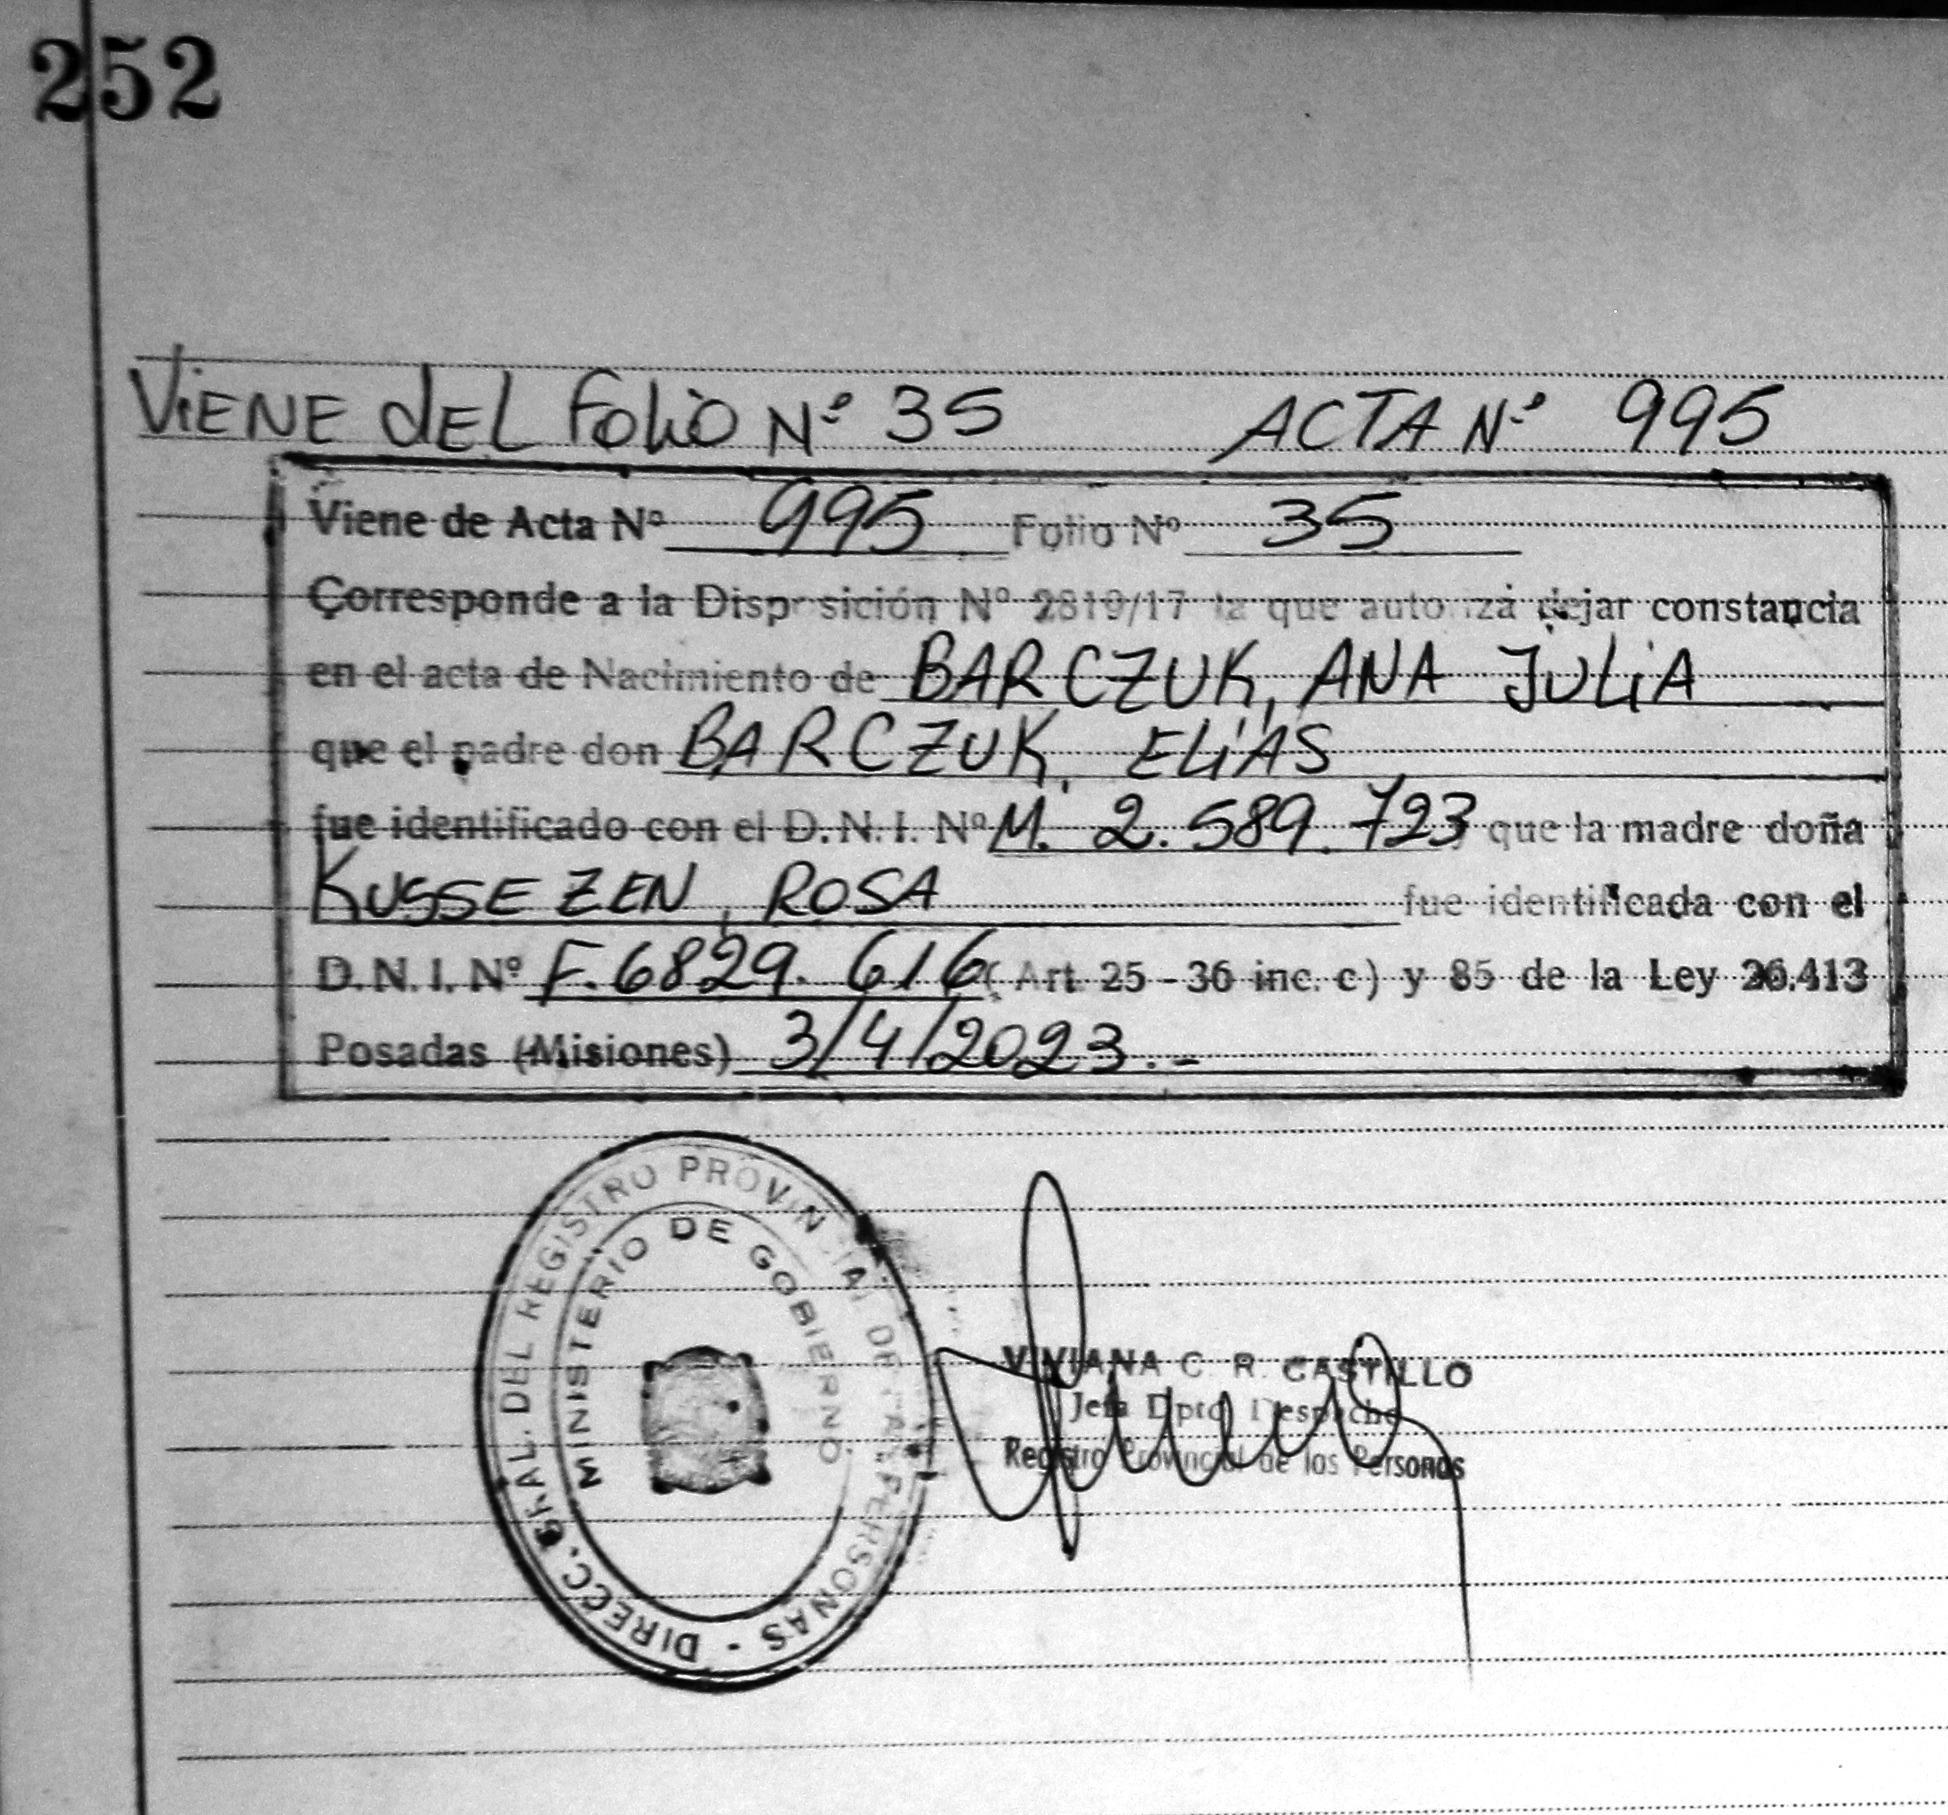 252
ViENE dEL Folio Nº 35 ACTA Nº 995
Viene de Acta Nº 995 Folio Nº 35
Corresponde a la Disposición Nº 2819/17 la que autoriza dejar constancia
en el acta de Nacimiento de BARCZUK, ANA JULiA
que el padre don BARCZUK, ELiAS
fue identificado con el D.N.I. Nº M. 2.589.723 que la madre doña
KUSSEZEN, ROSA fue identificada con el
D.N.I. Nº F.6829.616 (Art. 25 - 36 inc. c) y 85 de la Ley 26.413
Posadas (Misiones) 3/4/2023.-
DIRECC. GRAL. DEL REGISTRO PROVINCIAL DE LAS PERSONAS -
MINISTERIO DE GOBIERNO
VIVIANA C. R. CASTILLO
Jefa Dpto Despacho
Registro Provincial de las Personas